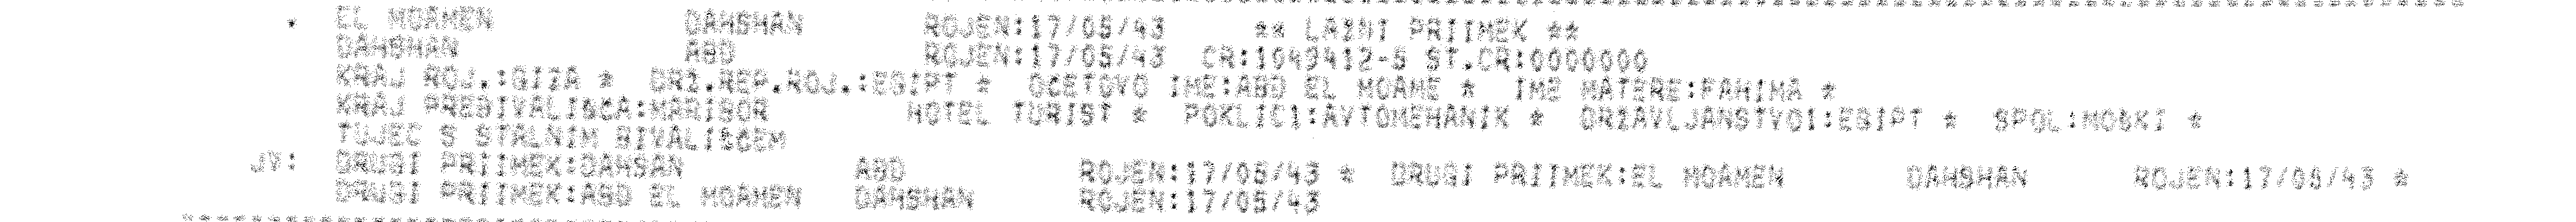 EL MOAMEN DAHSHAN ROJEN:17/05/43 ** LAZNI PRIIMEK **
DAHSHAN ABD ROJEN:17/05/43 CR:1049412-5 ST.CR:0000000
KRAJ ROJ.:GIZA * DRZ.REP.ROJ.:EGIPT * OCETOVO IME:ABD EL MOAME * IME MATERE:FAHIMA *
KRAJ PREBIVALISCA:MARIBOR HOTEL TURIST * POKLIC1:AVTOMEHANIK * DRZAVLJANSTVO1:EGIPT * SPOL:MOSKI *
TUJEC S STALNIM BIVALISCEM
JV: DRUGI PRIIMEK:DAHSAN ABD ROJEN:17/05/43 * DRUGI PRIIMEK:EL MOAMEN DAHSHAN ROJEN:17/05/43 *
DRUGI PRIIMEK:ABD EL MOAMEN DAHSHAN ROJEN:17/05/43